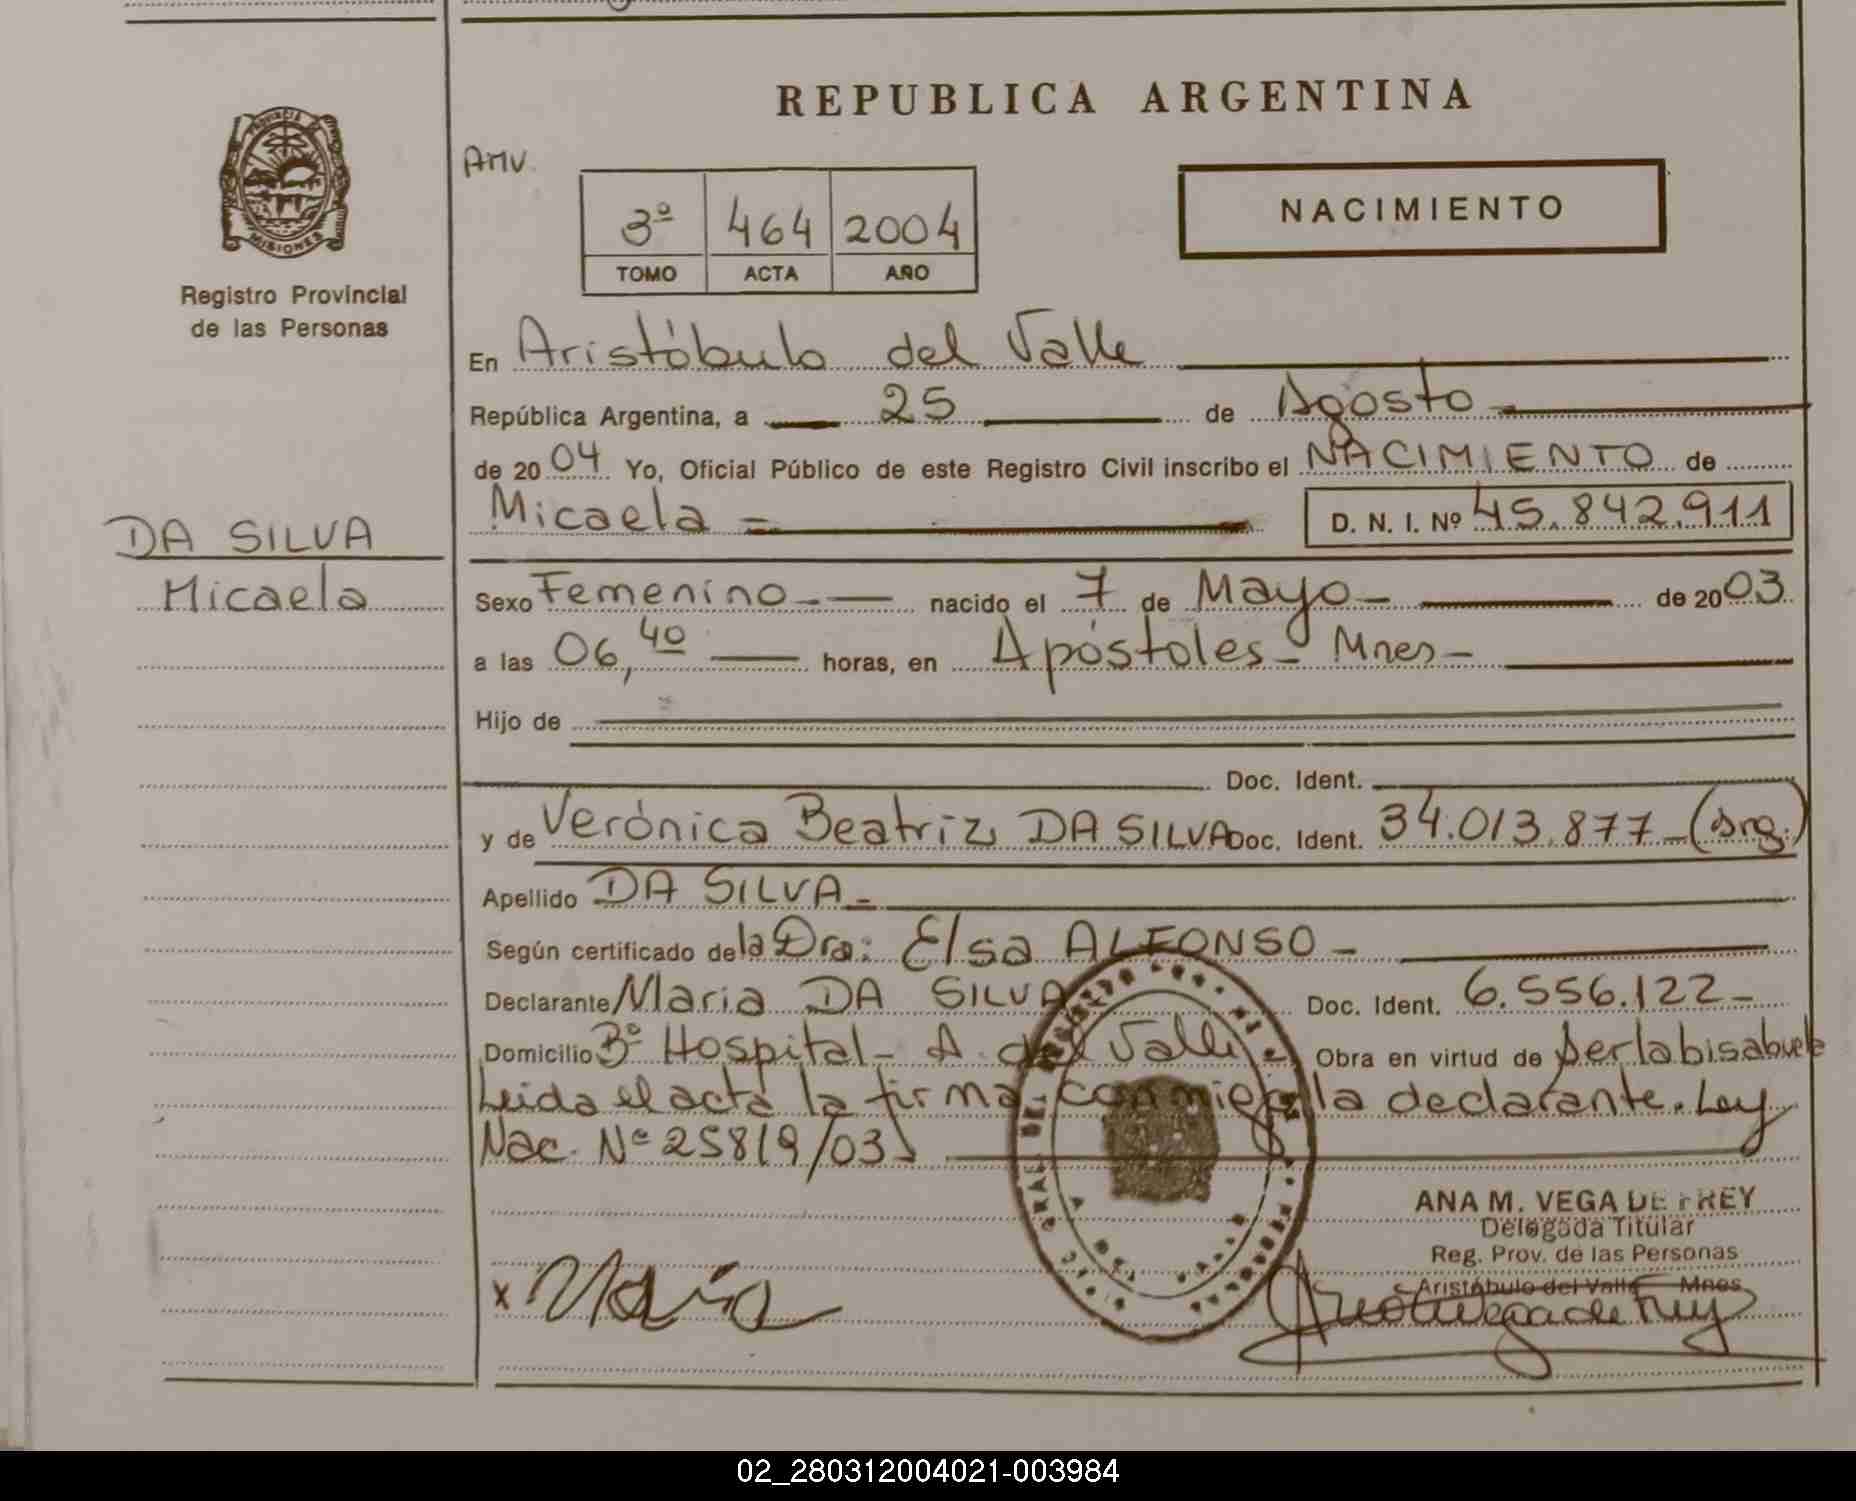 REPUBLICA ARGENTINA
PROVINCIA DE
MISIONES
Registro Provincial
de las Personas
AMV.
3º 464 2004
TOMO ACTA AÑO
NACIMIENTO
En Aristóbulo del Valle
República Argentina, a 25 de Agosto
de 2004 Yo, Oficial Público de este Registro Civil inscribo el NACIMIENTO de
Micaela = D. N. I. Nº 45.842.911
DA SILVA
Micaela
Sexo Femenino nacido el 7 de Mayo de 2003
a las 06,40 horas, en Apóstoles - Mnes -
Hijo de
Doc. Ident.
y de Verónica Beatriz DA SILVA Doc. Ident. 34.013.877 - (Arg.)
Apellido DA SILVA -
Según certificado de la Dra: Elsa ALFONSO -
Declarante Maria DA SILVA Doc. Ident. 6.556.122 -
Domicilio Bº Hospital - A. del Valle - Obra en virtud de ser la bisabuela
Leida el acta la firma conmigo la declarante. Ley
Nac. Nº 25819/03
ANA M. VEGA DE FREY
Delegada Titular
Reg. Prov. de las Personas
Aristóbulo del Valle - Mnes
x María
02_280312004021-003984